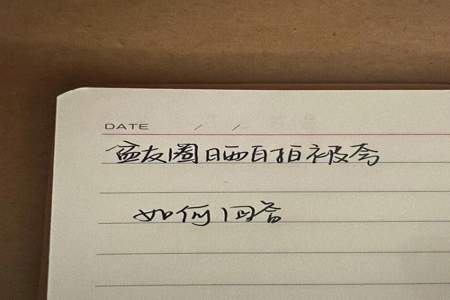 DATE / /
盆友圈晒自拍被夸
如何回答